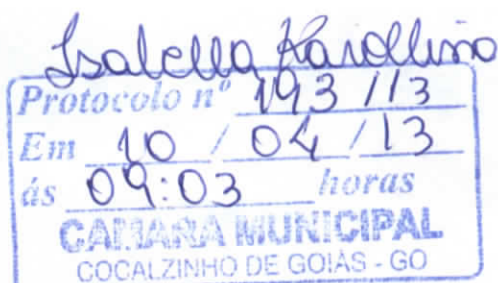 Isabella Karollino
Protocolo nº 193/13
Em 10 / 04 / 13
ás 09:03 horas
CAMARA MUNICIPAL
COCALZINHO DE GOIÁS - GO